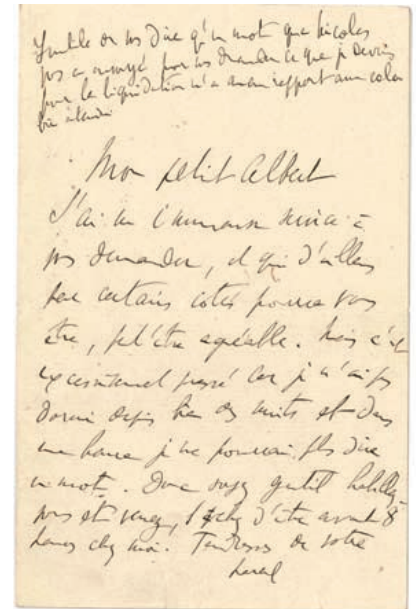 Inutile de vs dire qu'un mot que Nicolas
vs a envoyé pour vs demander ce que je devais
pour la liquidation n'a aucun rapport avec cela
bien entendu
Mon petit Albert
J'ai un immense service à
vs demander, et qui d'ailleurs
par certains côtés pourra vous
être, peut'être agréable. Mais c'est
excessivement pressé car je n'ai pas
dormi depuis bien des nuits et dans
une heure je ne pourrais plus dire
un mot. Donc soyez gentil habillez-
vous et venez, tachez d'être avant 8
heures chez moi. Tendresses de votre
Marcel